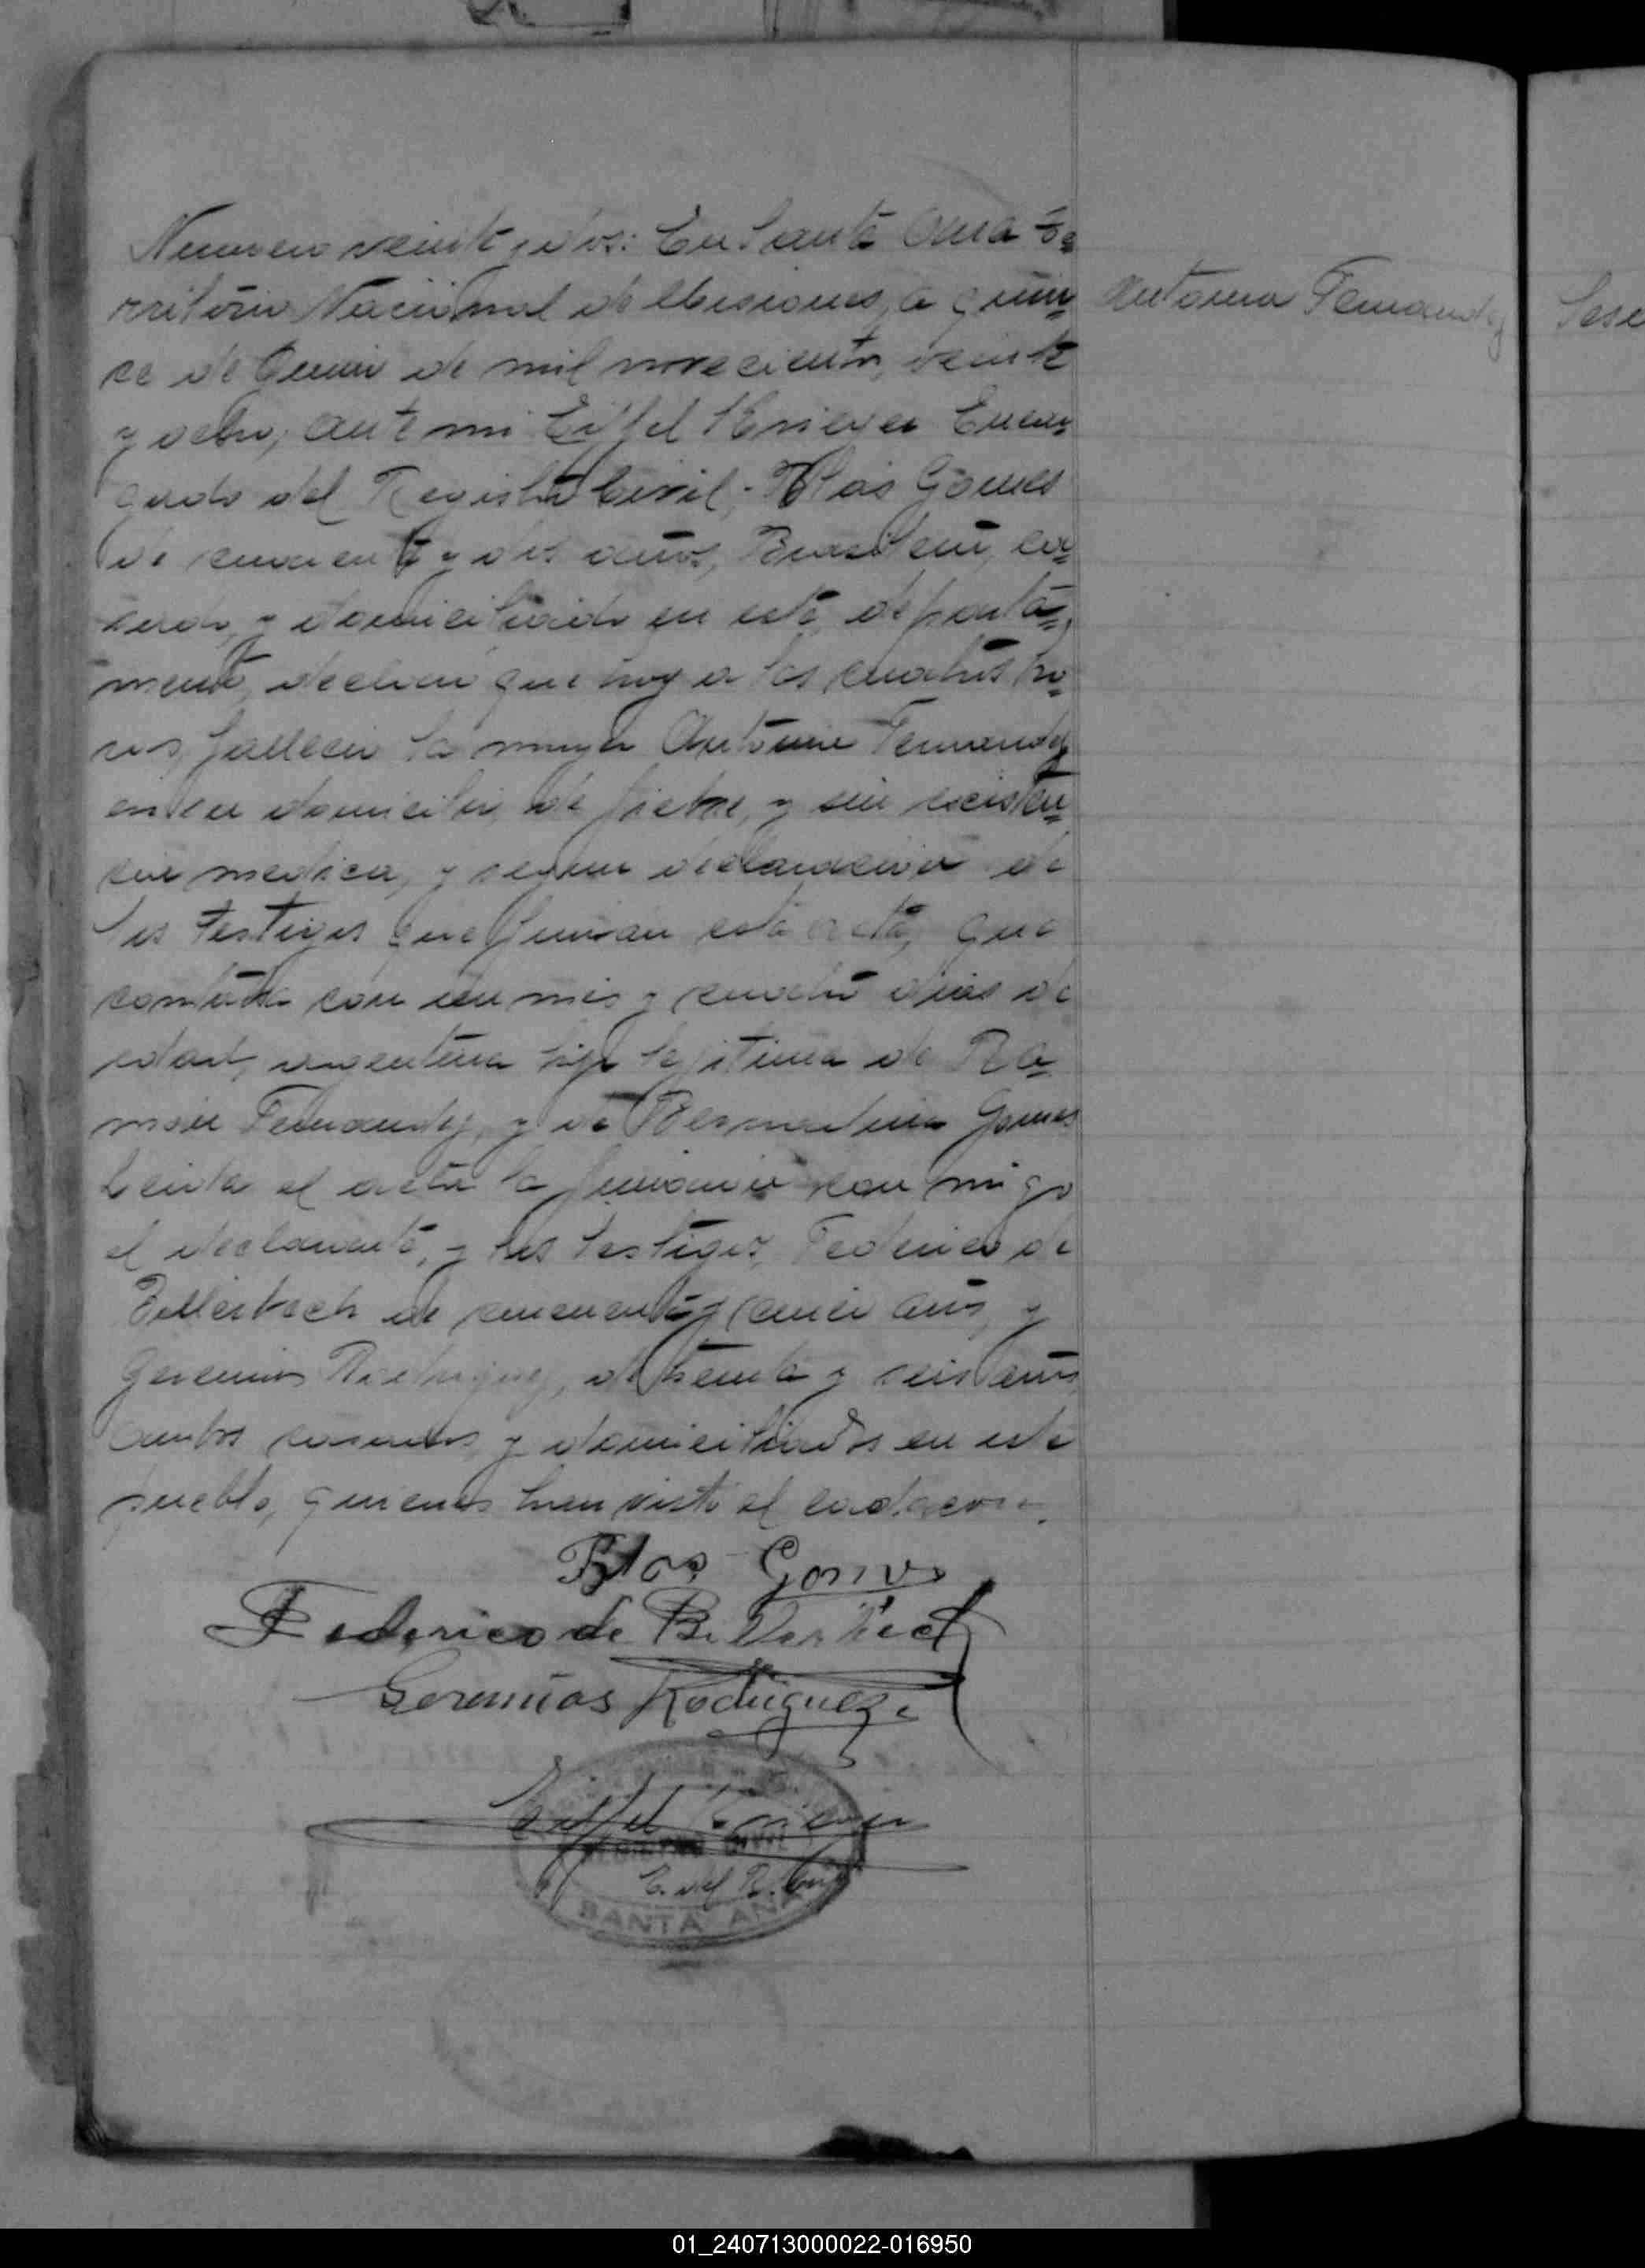 Numero veinte y dos: En Santa Ana Te=
rritorio Nacional de Misiones, a quin=
ce de de mil novecientos veinte
y ocho, ante mi Eiffel Encar=
gado del Registro Civil, Blas Gomes
de cuarenta y dos años, Brasilero, ca=
sado, y domiciliado en este departa=
mento, declaró que hoy a las cuatro ho=
ras, fallecio la mujer Antonia Fernandez
en su domicilio, de fiebre, y sin
medica, y segun declaracion de
los testigos que firman esta acta, que
contaba con un mes y cuatro dias de
edad, argentina hija lejitima de Ra=
mon Fernandez, y de Bernardina Gomes
Leida el acta la firmaron con migo
el declarante, y los testigos, Federico de
de cincuenta y años, y
Geremias Rodriguez, de treinta y seis años
ambos casados, y domiciliados en este
pueblo, quienes han visto el cadaver.
Antonia Fernandez
Blas Gomes
Federico de
Geremias Rodriguez
Eiffel
REGISTRO CIVIL
E. del R. Civil
SANTA ANA
01_240713000022-016950